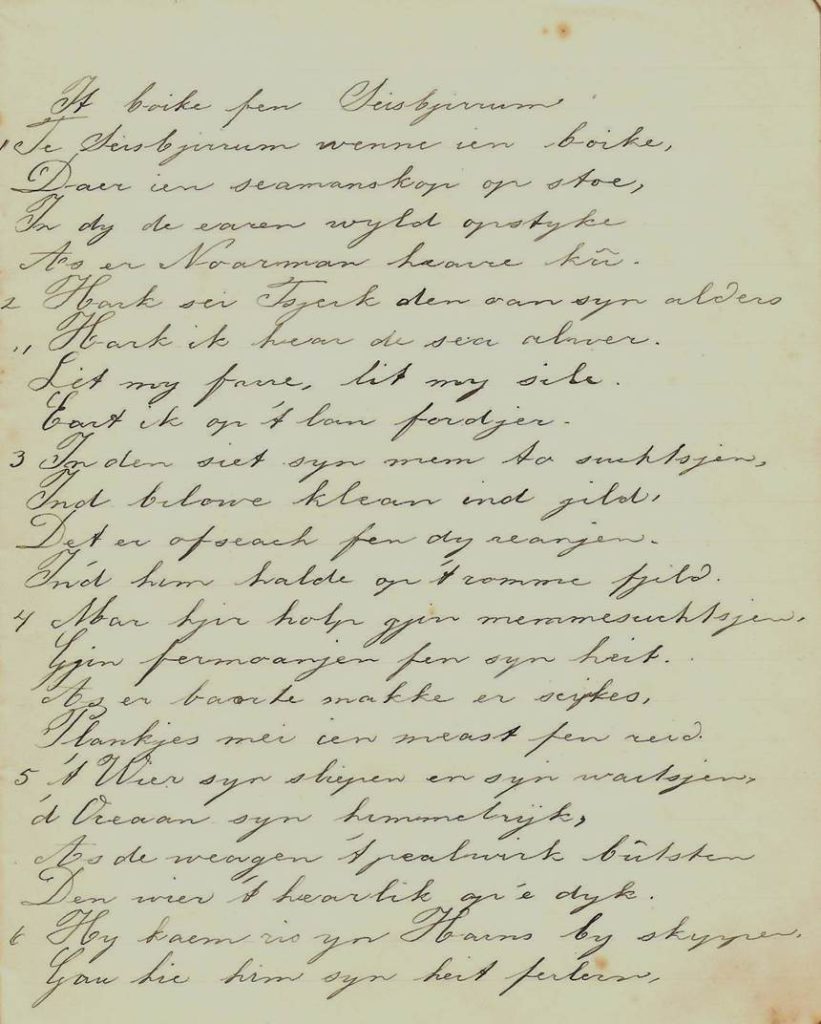 It boike fen Seisbjirrum
1 Te Seisbjirrum wenne ien boike,
Daer ien seamanskop op stoe,
In dy de earen wyld opstyke
As er Noarman heare kû.
2 Hark sei Tsjerk den oan syn alders
" Hark ik hear de see alwer.
Lit my farre, lit my sile.
Eart ik op 't lan fordjer.
3 In den siet syn mem to suchtsjen,
Ind bilowe klean ind jild,
Det er ofseach fen dy reanjen.
Ind him halde op 't romme fjild.
4 Mar hjir holp gjin memmesuchtsjen,
Gjin fermoanjen fen syn heit.
As er boarte makke er scipkes,
Plankjes mei ien meast fen reid.
5 't Wier syn sliepen en syn waitsjen,
d' Oceaan syn himmelryk,
As de weagen 't pealwirk bûtsten
Den wier 't hearlik op 'e dyk.
6 Hy kaem ris yn Harns by skypper,
Gau hie him syn heit ferlern,